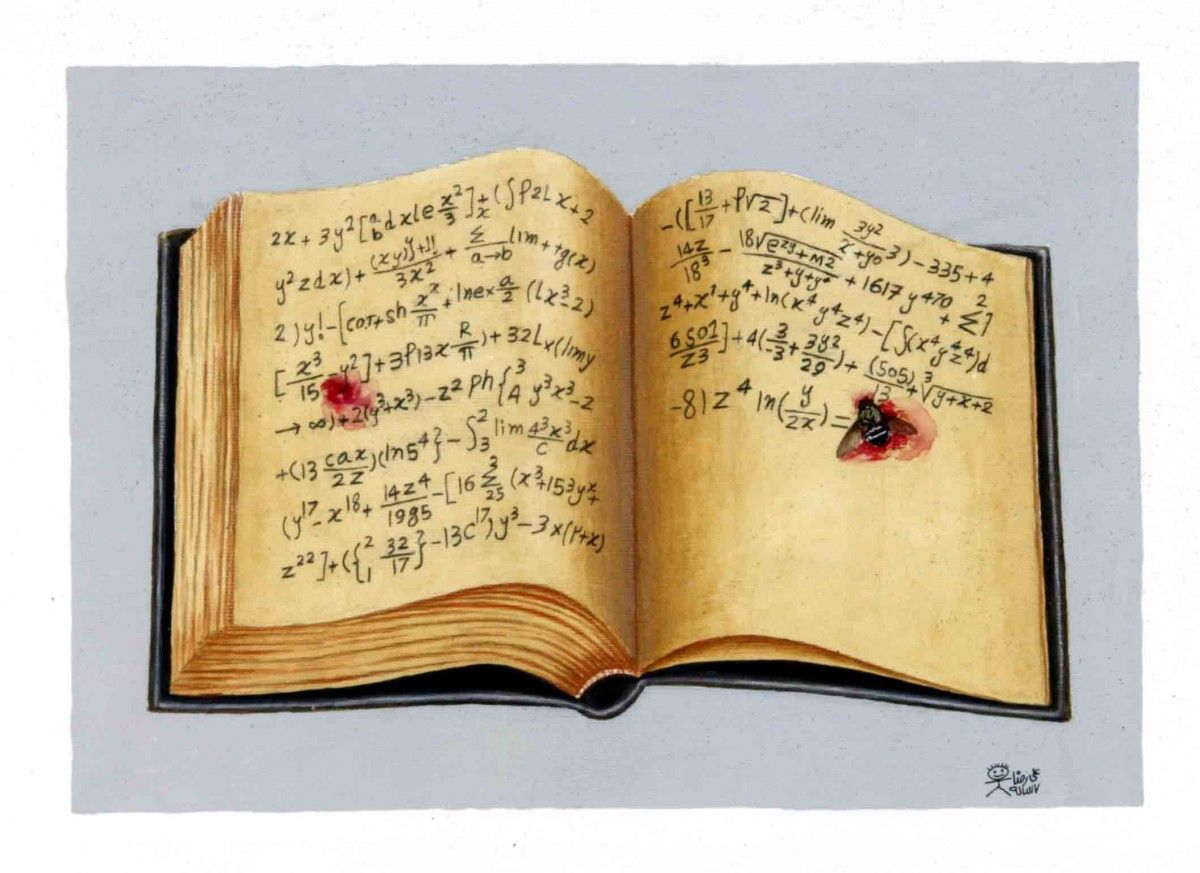 2x + 3y² [ᵃ_b dx le x²/3] + x (∫P2Lx+2
y² z dx) + (xy)^y+1!/3x² + Σ/a→b lim ++g(x)
2) y! - [cot+sh x^x/π + lnex a/2 (Lx³-2)
[x³/15 - y²] + 3P13x R/π) + 32Lx(limy
→ ∞) + 2(y³+x³) - z² Ph {³_A y³x³-z
+(13 cax/2z)(ln5⁴} - ∫₃² lim 4³x³/c dx
(y¹⁷ - x¹⁸ + 14z⁴/1985 - [16 Σ³₂₅ (x³+15³y^x+
z²²] + ({²₁ 32/17} - 13c¹⁷) y³ - 3x(r+x)
- ([13/17 + P√2] + (lim 3y²/x+y0 3) - 335 + 4
14z/18³ - 18√e^2y+m²/z³+y+y⁴ + 1617 y470 + 2
z⁴+x¹+y⁴+ln(x⁴y⁴z⁴) - [∫(x⁴y⁴z⁴)d Σ]
6501/z3] + 4(3/-3 + 3y²/29) + (505)/13 + ³√y+x+z
-81 z⁴ ln(y/2x) =
علی رضا
۷ ساله